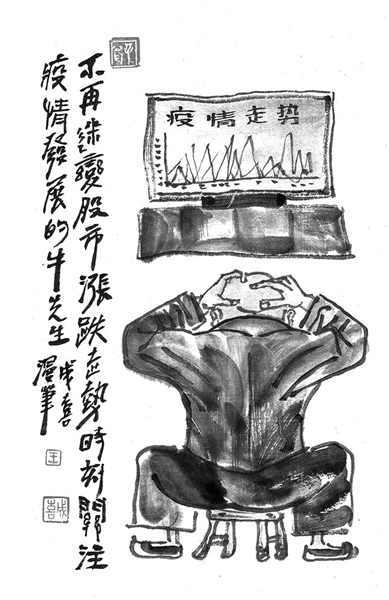 疫情走势
不再迷戀股市漲跌走勢時刻關注
疫情發展的牛先生
成喜
漫筆
王
成喜